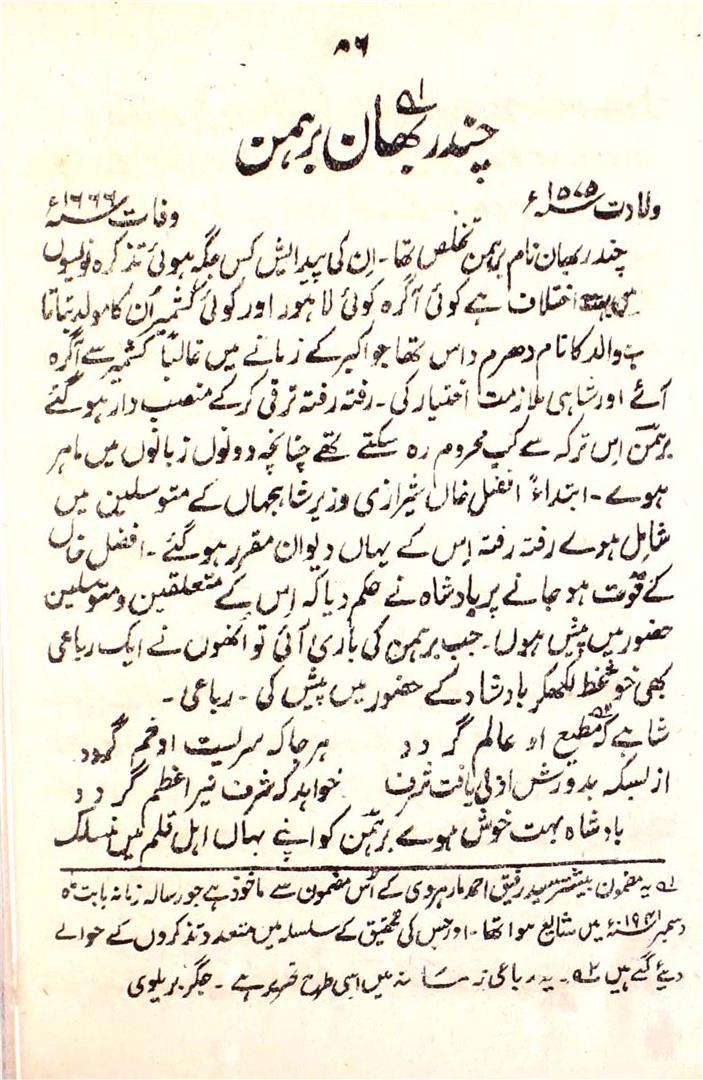 ۵۶
چندر بھان برہمن ؎۱
ولادت ۱۵۷۵ء وفات ۱۶۶۶ء
چندر بھان نام برہمن تخلص تھا۔ ان کی پیدایش کس جگہ ہوئی تذکرہ نویسوں
میں بہت اختلاف ہے کوئی آگرہ کوئی لاہور اور کوئی کشمیر اُن کا مولد بتاتا
ہے والد کا نام دھرم داس تھا جو اکبر کے زمانے میں غالباً کشمیر سے آگرہ
آئے اور شاہی ملازمت اختیار کی۔ رفتہ رفتہ ترقی کرکے منصب دار ہو گئے
برہمن اس ترکہ سے کب محروم رہ سکتے تھے چنانچہ دونوں زبانوں میں ماہر
ہوے۔ ابتداءً افضل خاں شیرازی وزیر شاہجہاں کے متوسلین میں
شامل ہوے رفتہ رفتہ اس کے یہاں دیوان مقرر ہو گئے۔ افضل خاں
کے فوت ہو جانے پر بادشاہ نے حکم دیا کہ اِس کے متعلقین و متوسلین
حضور میں پیش ہوں۔ جب برہمن کی باری آئی تو انھوں نے ایک رباعی
بھی خوشخط لکھکر بادشاہ کے حضور میں پیش کی۔ رباعی۔
شاہے کہ ؎۲ مطیع او عالم گردد ہر جا کہ سریست او خم گردد
از بسکہ بدورش آدمی یافت شرف خواہد کہ شرف نیر اعظم گردد
بادشاہ بہت خوش ہوے برہمن کو اپنے یہاں اہل قلم میں منسلک
؎۱ یہ مضمون بیشتر سید رفیق احمد مارہروی کے اُس مضمون سے ماخوذ ہے جو رسالہ زمانہ بابت ماہ
دسمبر ۱۹۴۱ء میں شایع ہوا تھا۔ اور جس کی تحقیق کے سلسلہ میں متعدد تذکروں کے حوالے
دیئے گئے ہیں ؎۲۔ یہ رباعی زمانہ میں اسی طرح تحریر ہے۔ جگر بریلوی